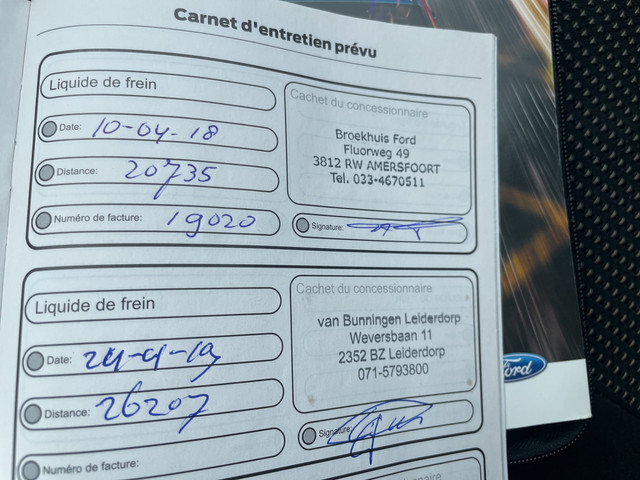 Carnet d'entretien prévu
Liquide de frein
Date: 10-04-18
Distance: 20735
Numéro de facture: 19020
Cachet du concessionnaire
Broekhuis Ford
Fluorweg 49
3812 RW AMERSFOORT
Tel. 033-4670511
Signature:
Liquide de frein
Date: 24-4-19
Distance: 26207
Numéro de facture:
Cachet du concessionnaire
van Bunningen Leiderdorp
Weversbaan 11
2352 BZ Leiderdorp
071-5793800
Signature:
Ford